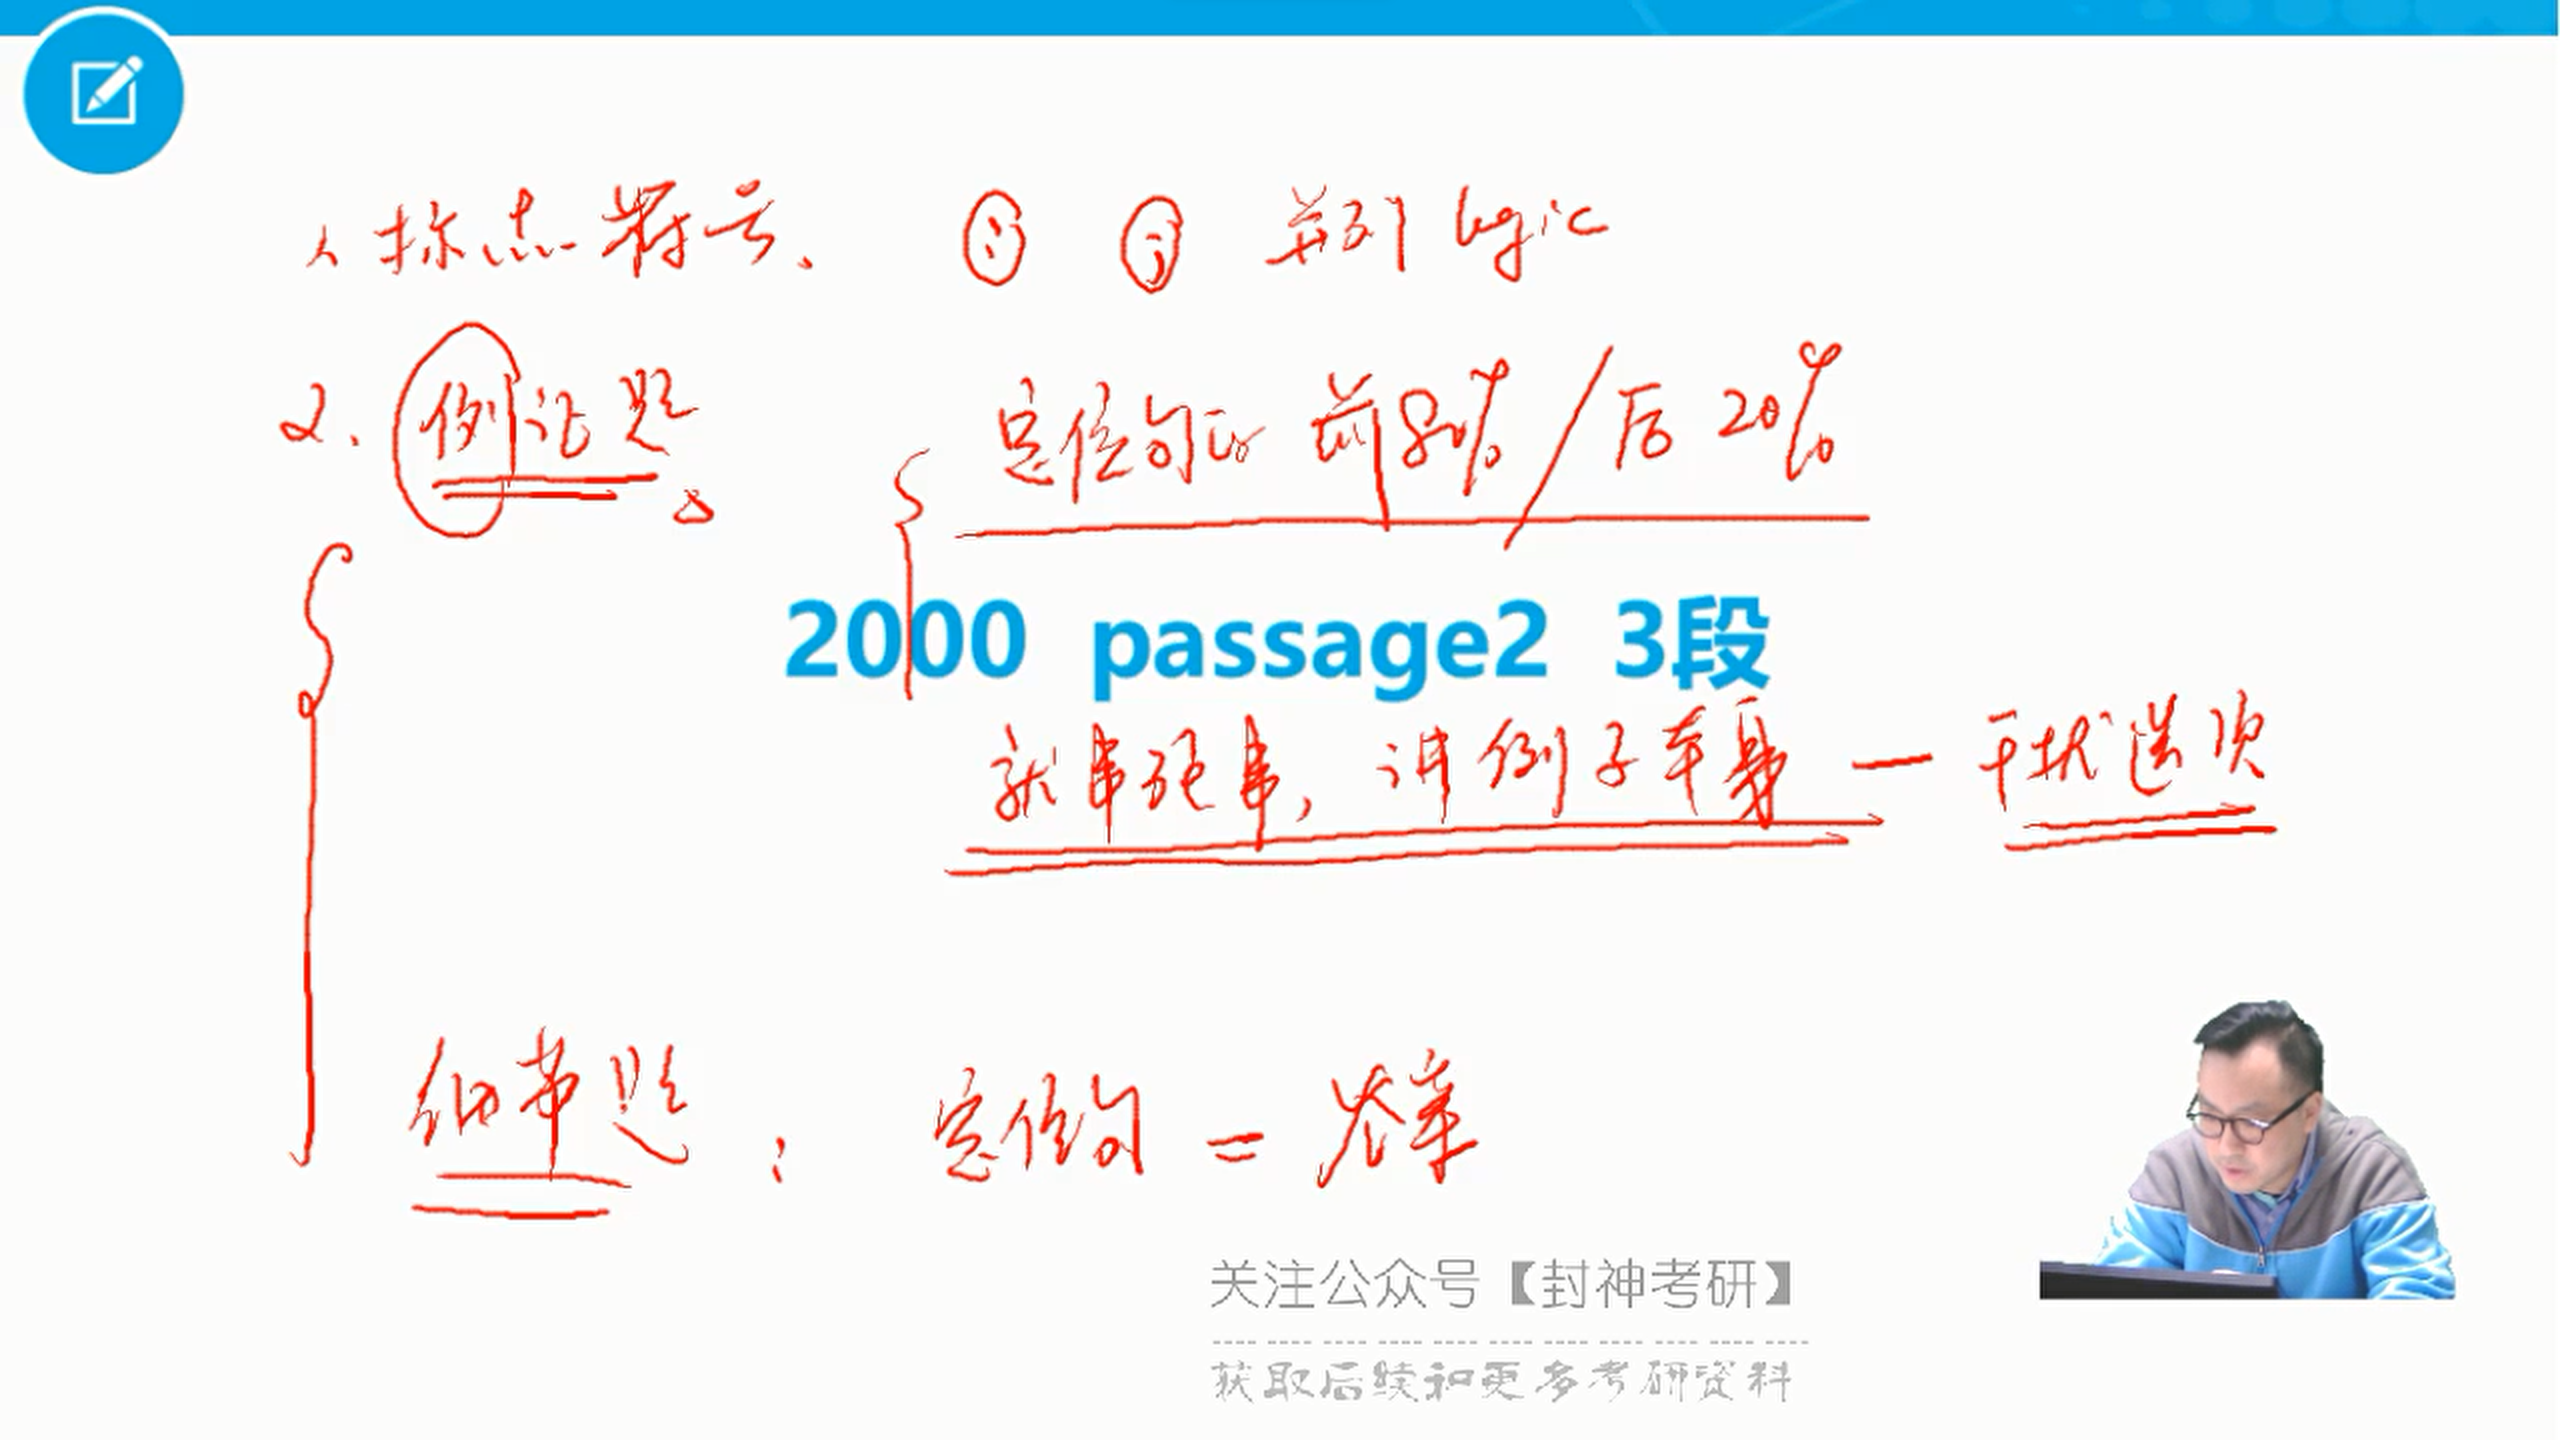 1、标志符号、 : ; 并列 logic
2、例证题 定位句的 前80% / 后 20%
2000 passage2 3段
就事论事, 讲例子本身 — 干扰选项
细节题 : 定位句 = 答案
关注公众号【封神考研】
获取后续和更多考研资料